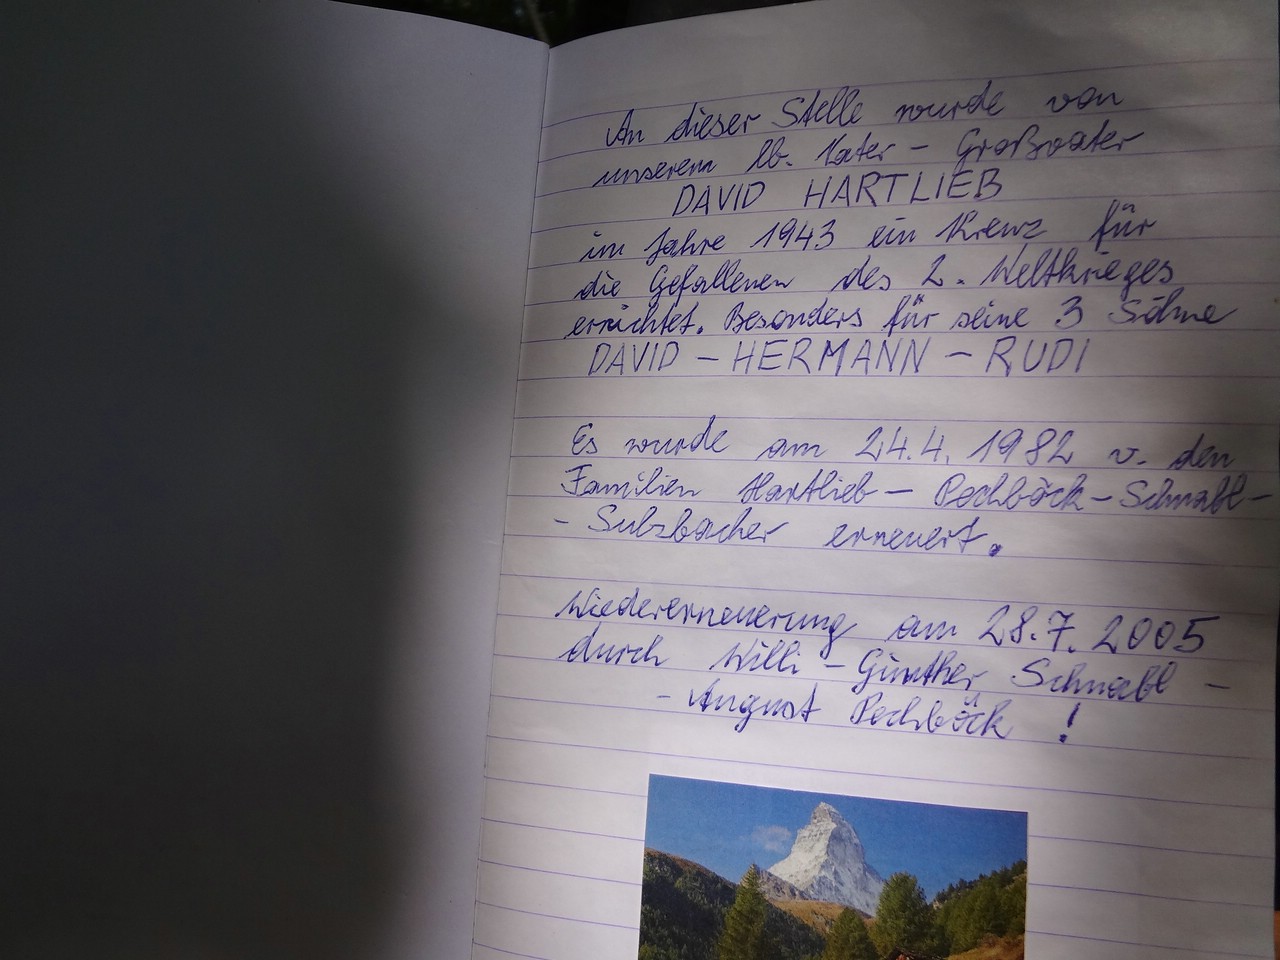 An dieser Stelle wurde von
unserem lb. Vater - Großvater
DAVID HARTLIEB
im Jahre 1943 ein Kreuz für
die Gefallenen des 2. Weltkrieges
errichtet. Besonders für seine 3 Söhne
DAVID - HERMANN - RUDI
Es wurde am 24.4.1982 v. den
Familien Hartlieb - Pechböck - Schnabl -
- Sulzbacher erneuert.
Wiedererneuerung am 28.7.2005
durch Willi - Günther Schnabl -
- August Pechböck !